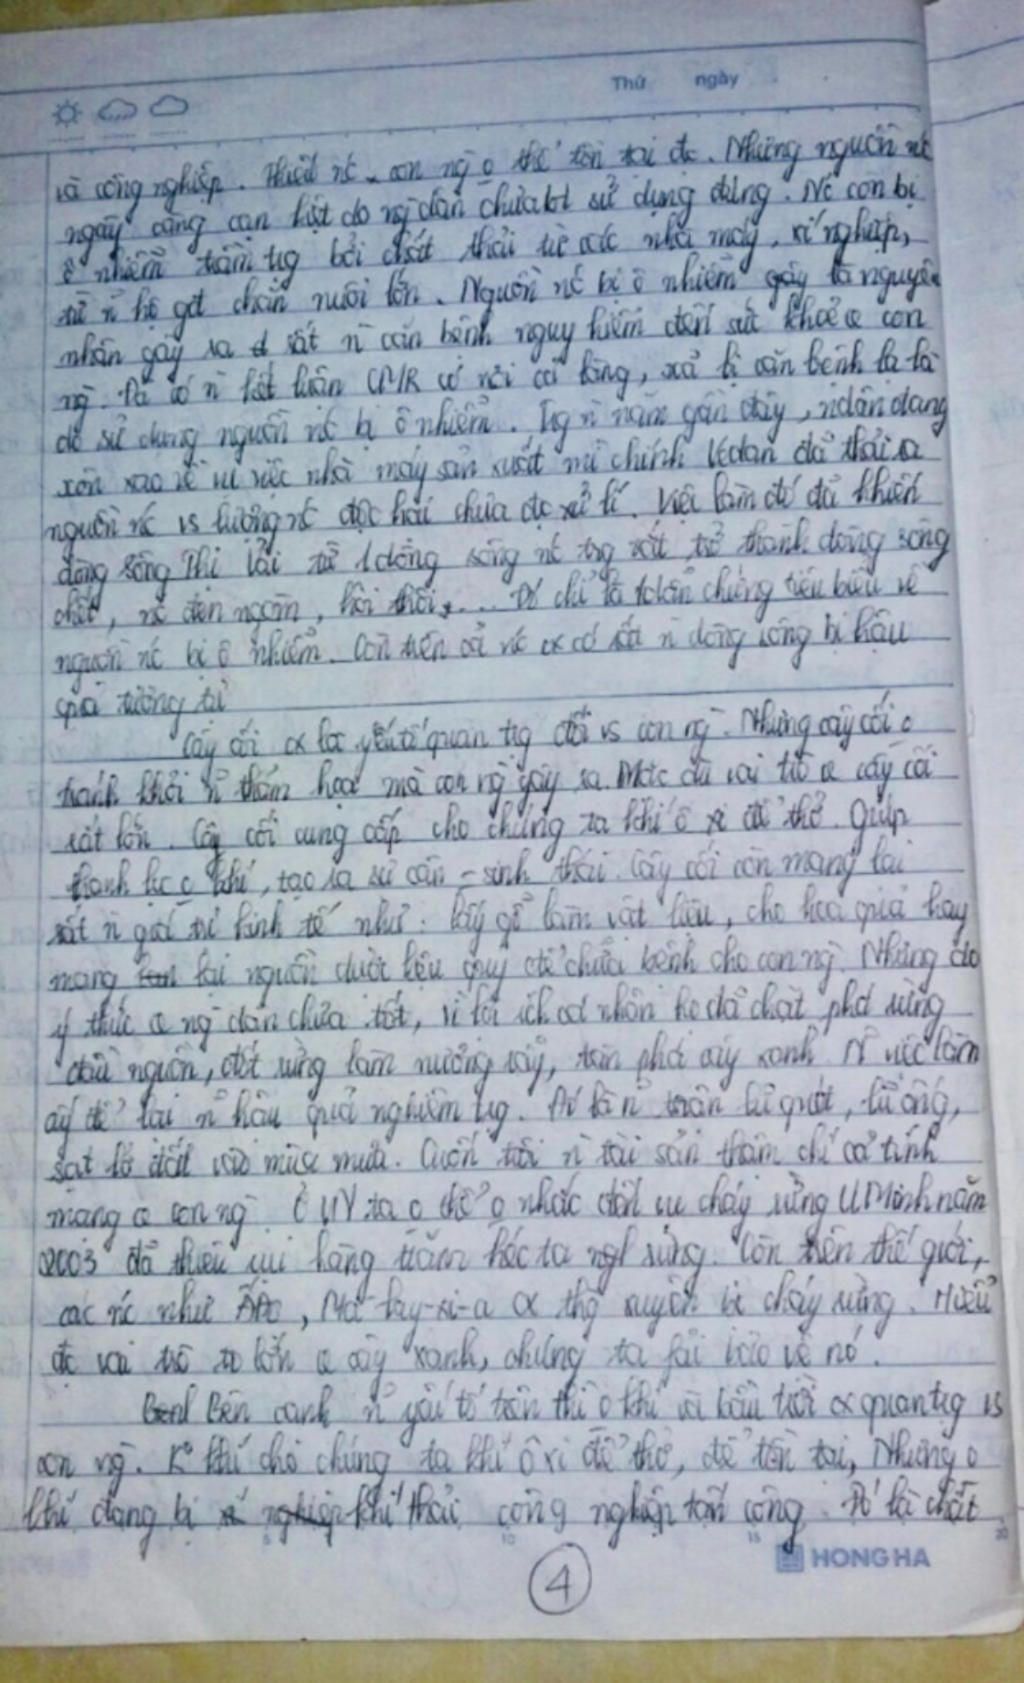 Thứ ngày
và công nghiệp. Thiếu nc con ng o thể tồn tại đc. Những nguồn nc
ngày càng cạn kiệt do ng dân chưa bt sử dụng đúng. Nc còn bị
ô nhiễm trầm tɤg bởi chất thải từ các nhà máy, xí nghiệp,
từ n hộ gđ chăn nuôi lớn. Nguồn nc bị ô nhiễm gây là nguyên
nhân gây ra rất n căn bệnh nguy hiểm đến sức khoẻ con
ng. Đã có n kết luận CMR có nơi cả làng, xã bị căn bệnh lạ là
do sử dụng nguồn nc bị ô nhiễm. Tɤg n năm gần đây, ndân đang
xôn xao về vụ việc nhà máy sản xuất mì chính Vedan đã thải ra
nguồn nc vs lượng nc độc hại chưa đc xử lí. Việc làm đó đã khiến
dòng sông Thị Vải từ 1 dòng sông nc tɤg mát trở thành dòng sông
chết, nc đen ngòm, hôi thối,... Đó chỉ là 1 dẫn chứng tiêu biểu về
nguồn nc bị ô nhiễm. Còn trên cả nc cx có rất n dòng sông bị hậu
quả tương tự
Cây cối cx là yếu tố quan tɤg đối vs con ng. Nhưng cây cối o
tránh khỏi n thảm hoạ mà con ng gây ra. Mặc dù vai trò cây cối
rất lớn. Cây cối cung cấp cho chúng ta khí ô xi để thở. Giúp
thanh lọc o khí, tạo ra sự cân = sinh thái. Cây cối còn mang lại
rất n giá trị kinh tế như: lấy gỗ làm vật liệu, cho hoa quả hay
mang lại nguồn dược liệu quý để chữa bệnh cho con ng. Nhưng do
ý thức ng dân chưa tốt, vì lợi ích cá nhân họ đã chặt phá rừng
đầu nguồn, đốt rừng làm nương rẫy, tàn phá cây xanh. N việc làm
ấy để lại n hậu quả nghiêm tɤg. Đó là n trận lũ quét, lũ ống,
sạt lở đất vào mùa mưa. Cuốn trôi n tài sản thậm chí cả tính
mạng con ng. Ở VN ta o thể o nhắc đến vụ cháy rừng U Minh năm
2003 đã thiêu rụi hàng trăm héc ta rừng. Còn trên thế giới,
các nc như , Ma-lay-si-a cx thg xuyên bị cháy rừng. Hiểu
đc vai trò to lớn cây xanh, chúng ta fải bảo vệ nó.
Bên cạnh n yếu tố trên thì o khí và bầu trời cx quan tɤg vs
con ng. K khí cho chúng ta khí ô xi để thở, để tồn tại, Nhưng o
khí đang bị khí thải công nghiệp tấn công. Đó là chất
HONG HA
4